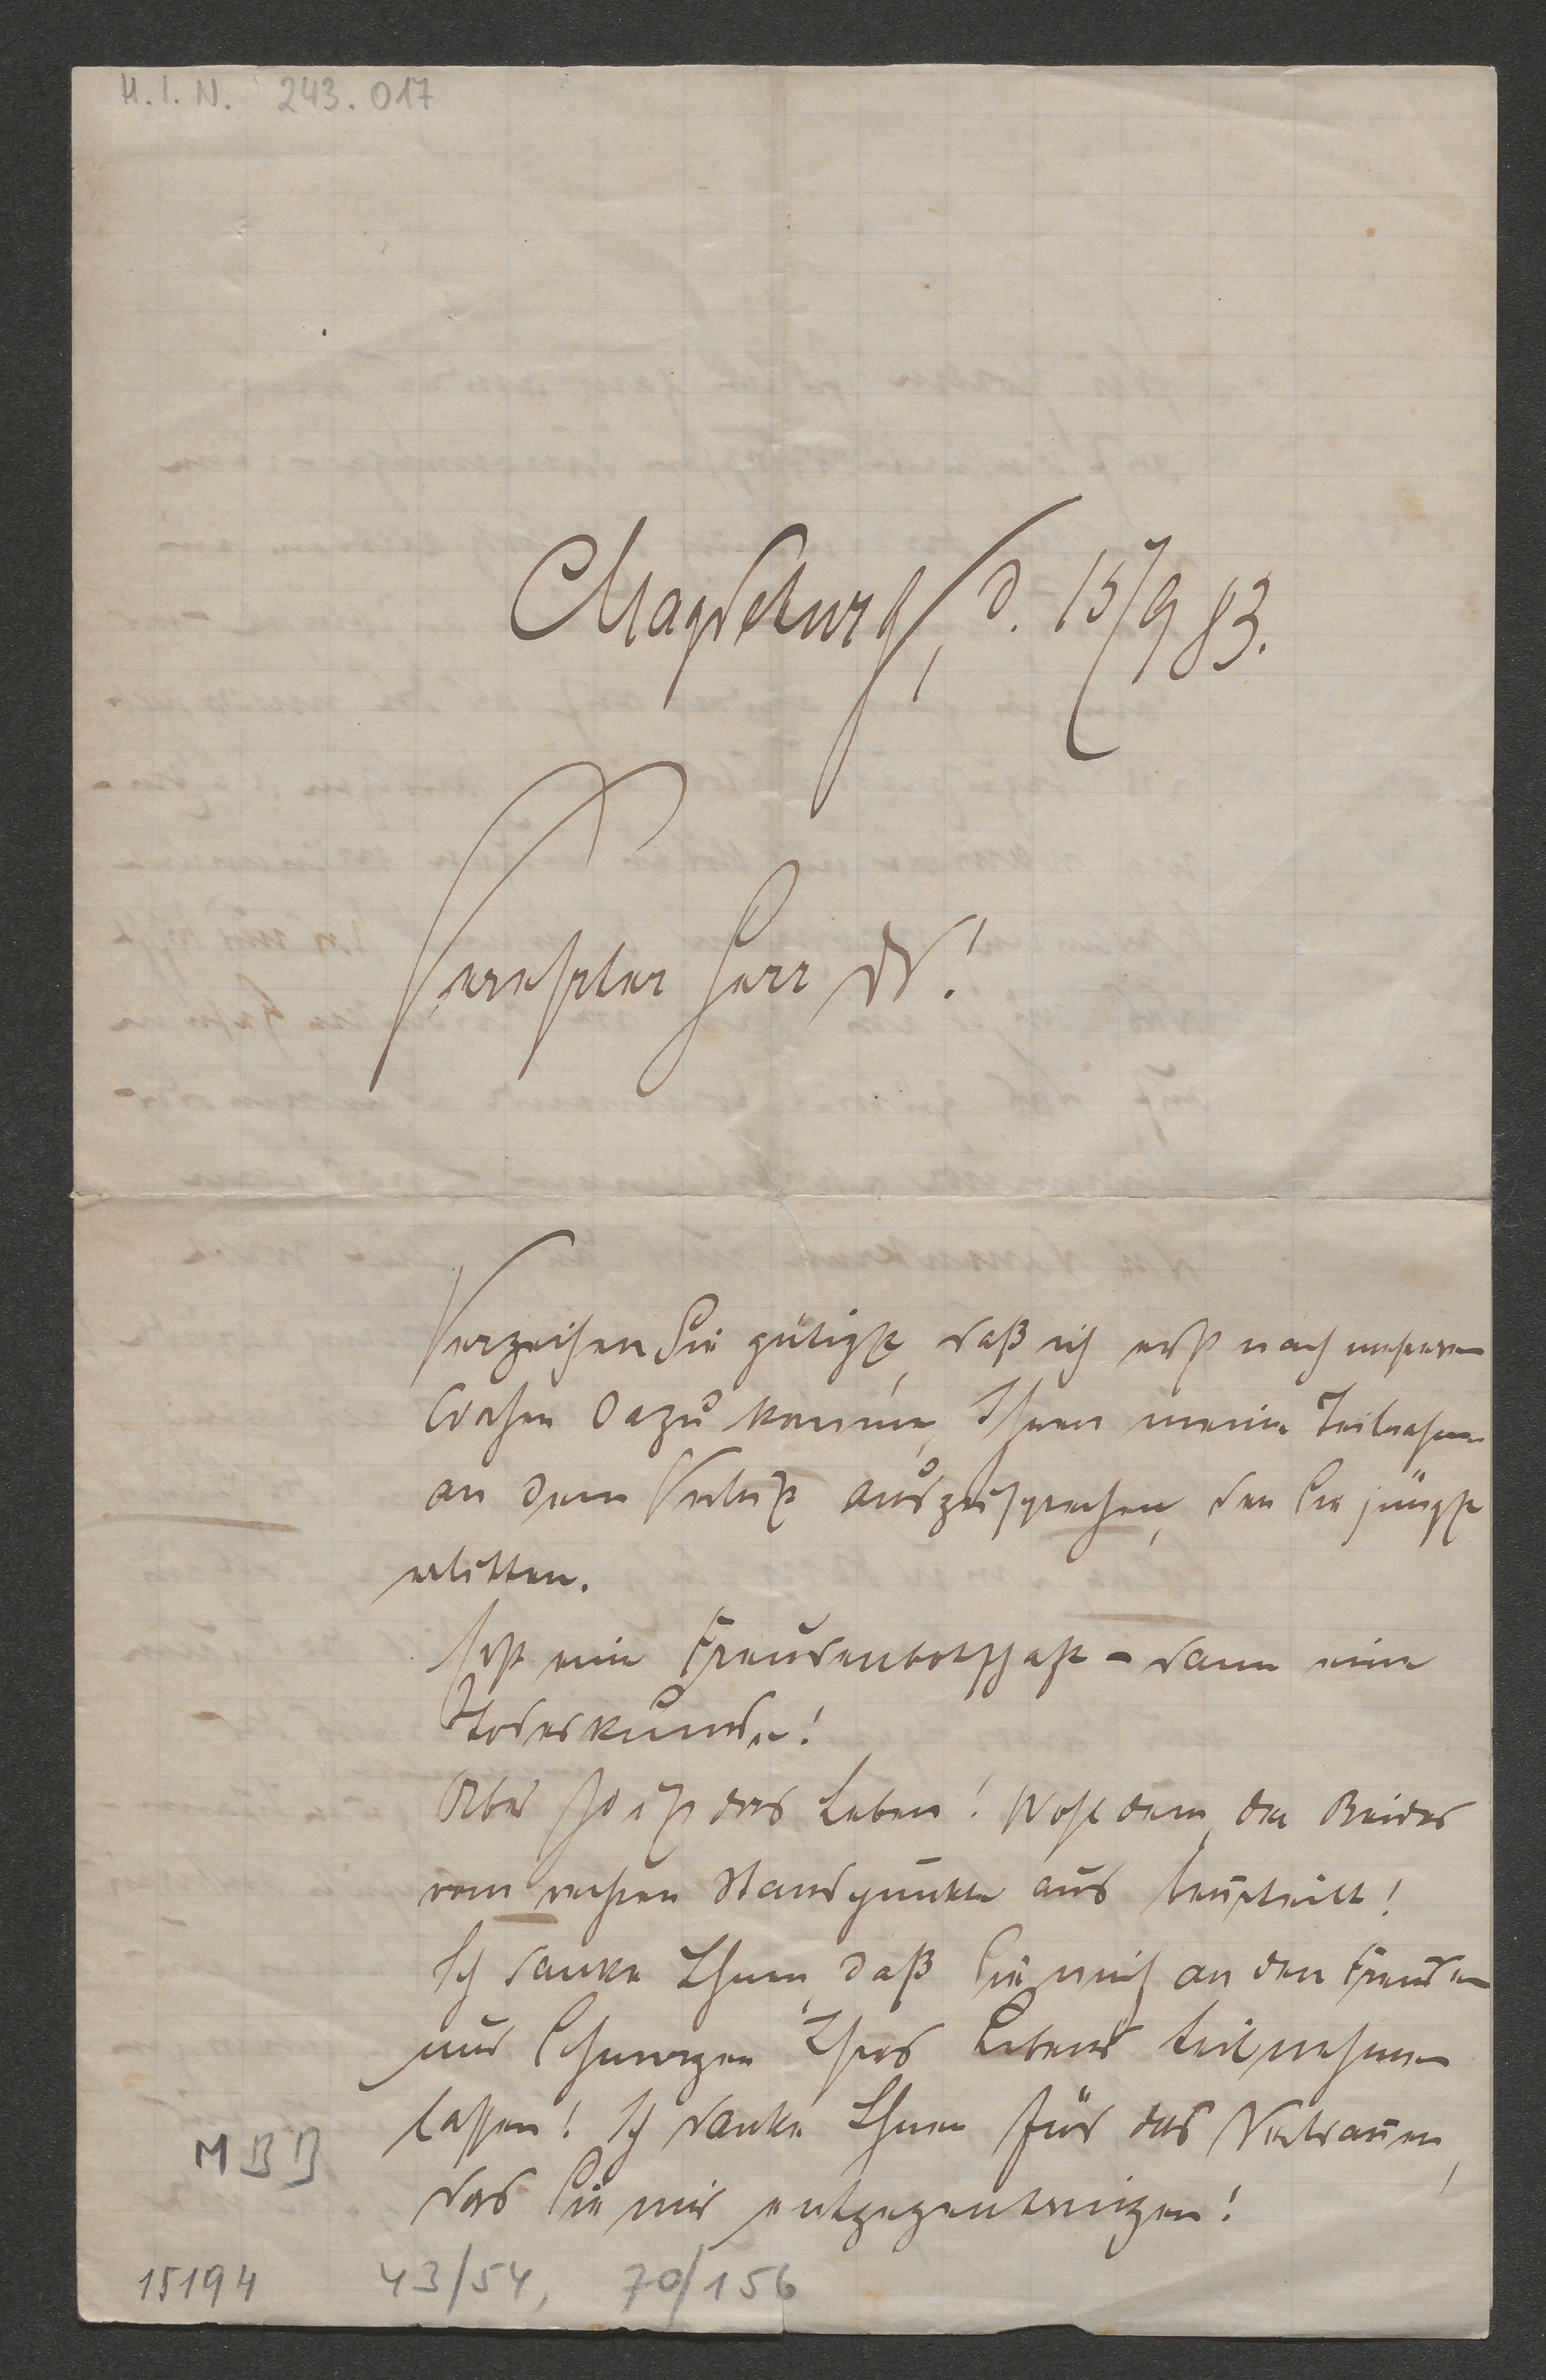 H. I. N. 243.017
Magdeburg, d. 15/9 83.
Verehrter Herr Dr!
Verzeihen Sie gütigst, daß ich erst nach mehreren
Wochen dazu komme, Ihnen meine Teilnahme
an dem Verlust auszusprechen, den Sie jüngst
erlitten.
Erst eine Freudenbotschaft - dann eine
Todeskunde!
Aber so ist das Leben! Wohl dem, der Beides
vom rechten Standpunkte aus beurteilt!
Ich danke Ihnen, daß Sie mich an den Freuden
und Schmerzen Ihres Lebens teilnehmen
lassen! Ich danke Ihnen für das Vertrauen,
das Sie mir entgegenbringen!
MBB
15194 43/54, 70/156